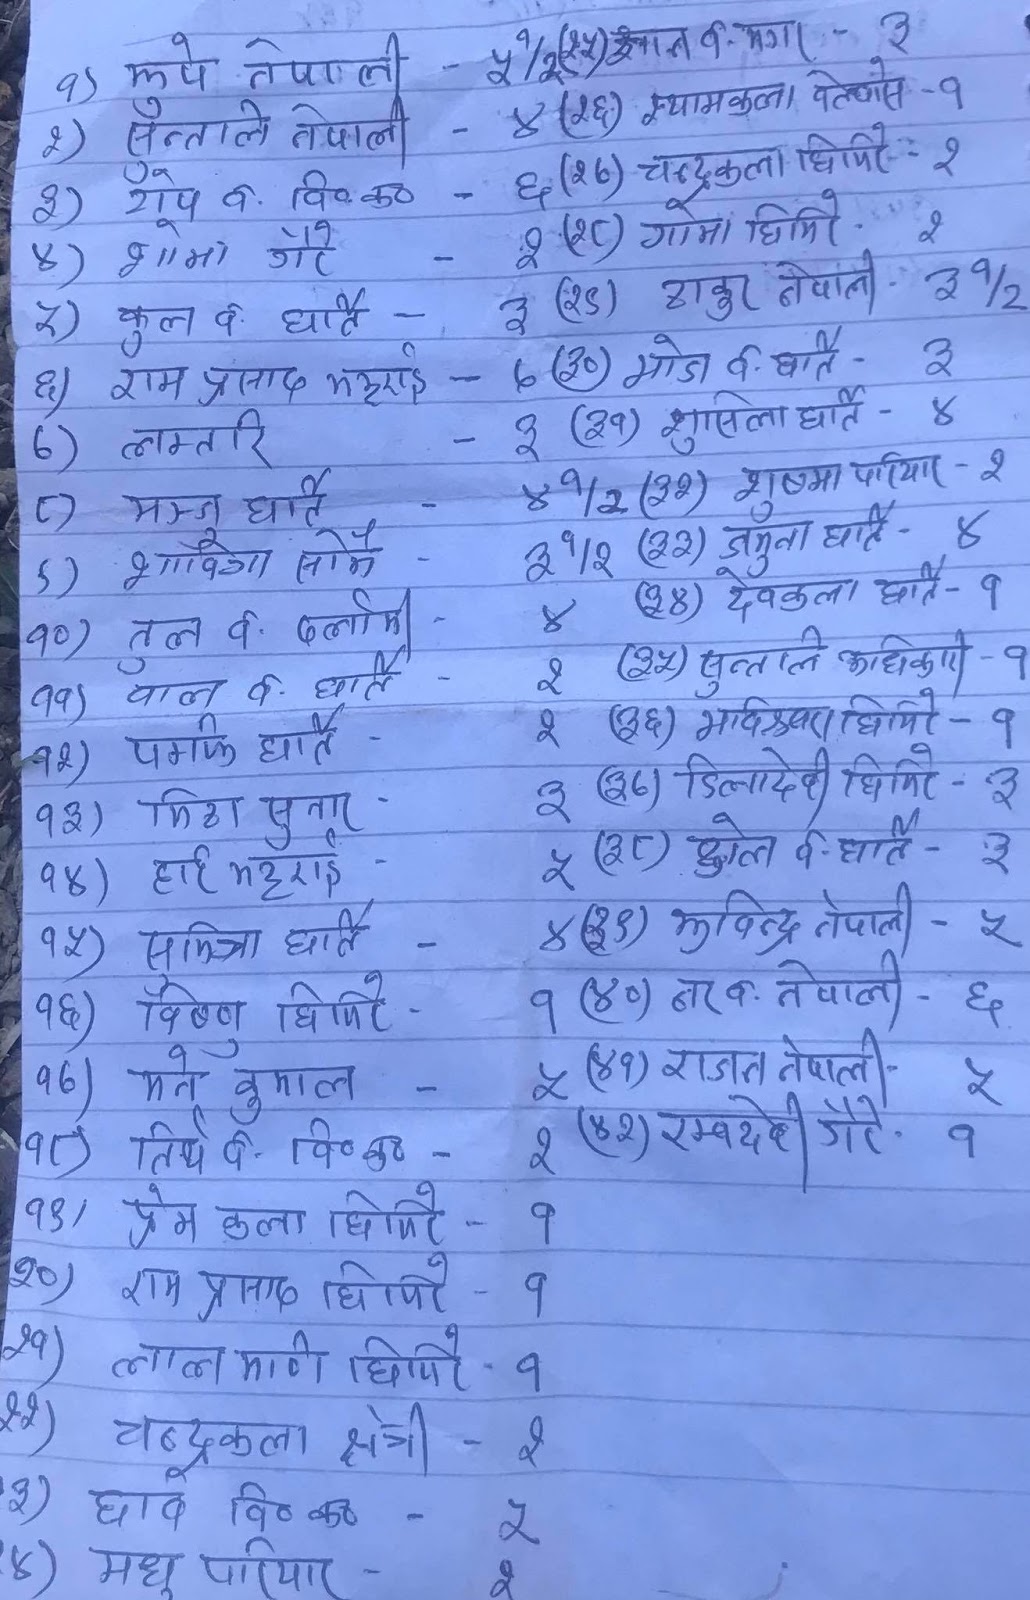 १) रुपे नेपाली - ५ १/२
२) सुन्ताले नेपाली - ४
३) गुप व. वि०क० - ६
४) शोभा गैरे - २
५) कुल व. घर्ति - ३
६) राम प्रसाद भट्टराई - ७
७) लामतरि - ३
८) मन्जु घर्ति - ४ १/२
९) - ३ १/२
१०) तुल व. दर्लामि - ४
११) बाल व. घर्ति - २
१२) पम्फि घर्ति - २
१३) मिठा सुनार - ३
१४) हरि भट्टराई - ५
१५) सुमित्रा घर्ति - ४
१६) विष्णु घिमिरे - १
१७) मने कुमाल - ५
१८) तिर्थ व. वि०क० - २
१९) प्रेम कला घिमिरे - १
२०) राम प्रसाद घिमिरे - १
२१) लाल मणी घिमिरे - १
२२) चन्द्रकला क्षेत्री - २
३) वि०क० - ५
४) मधु परियार - २
(२५) व. मगर - ३
(२६) श्यामकला - १
(२७) चन्द्रकला घिमिरे - २
(२८) गोमा घिमिरे - २
(२९) ठाकुर नेपाली - ३ १/२
(३०) व. घर्ति - ३
(३१) शुसिला घर्ति - ४
(३२) शुष्मा परियार - २
(३३) जमुना घर्ति - ४
(३४) देवकला घर्ति - १
(३५) सुन्ताले अधिकारी - १
(३६) घिमिरे - १
(३७) डिलादेवी घिमिरे - ३
(३८) व. घर्ति - ३
(३९) रुविन्द्र नेपाली - ५
(४०) नर व. नेपाली - ६
(४१) राजन नेपाली - ५
(४२) गैरे - १